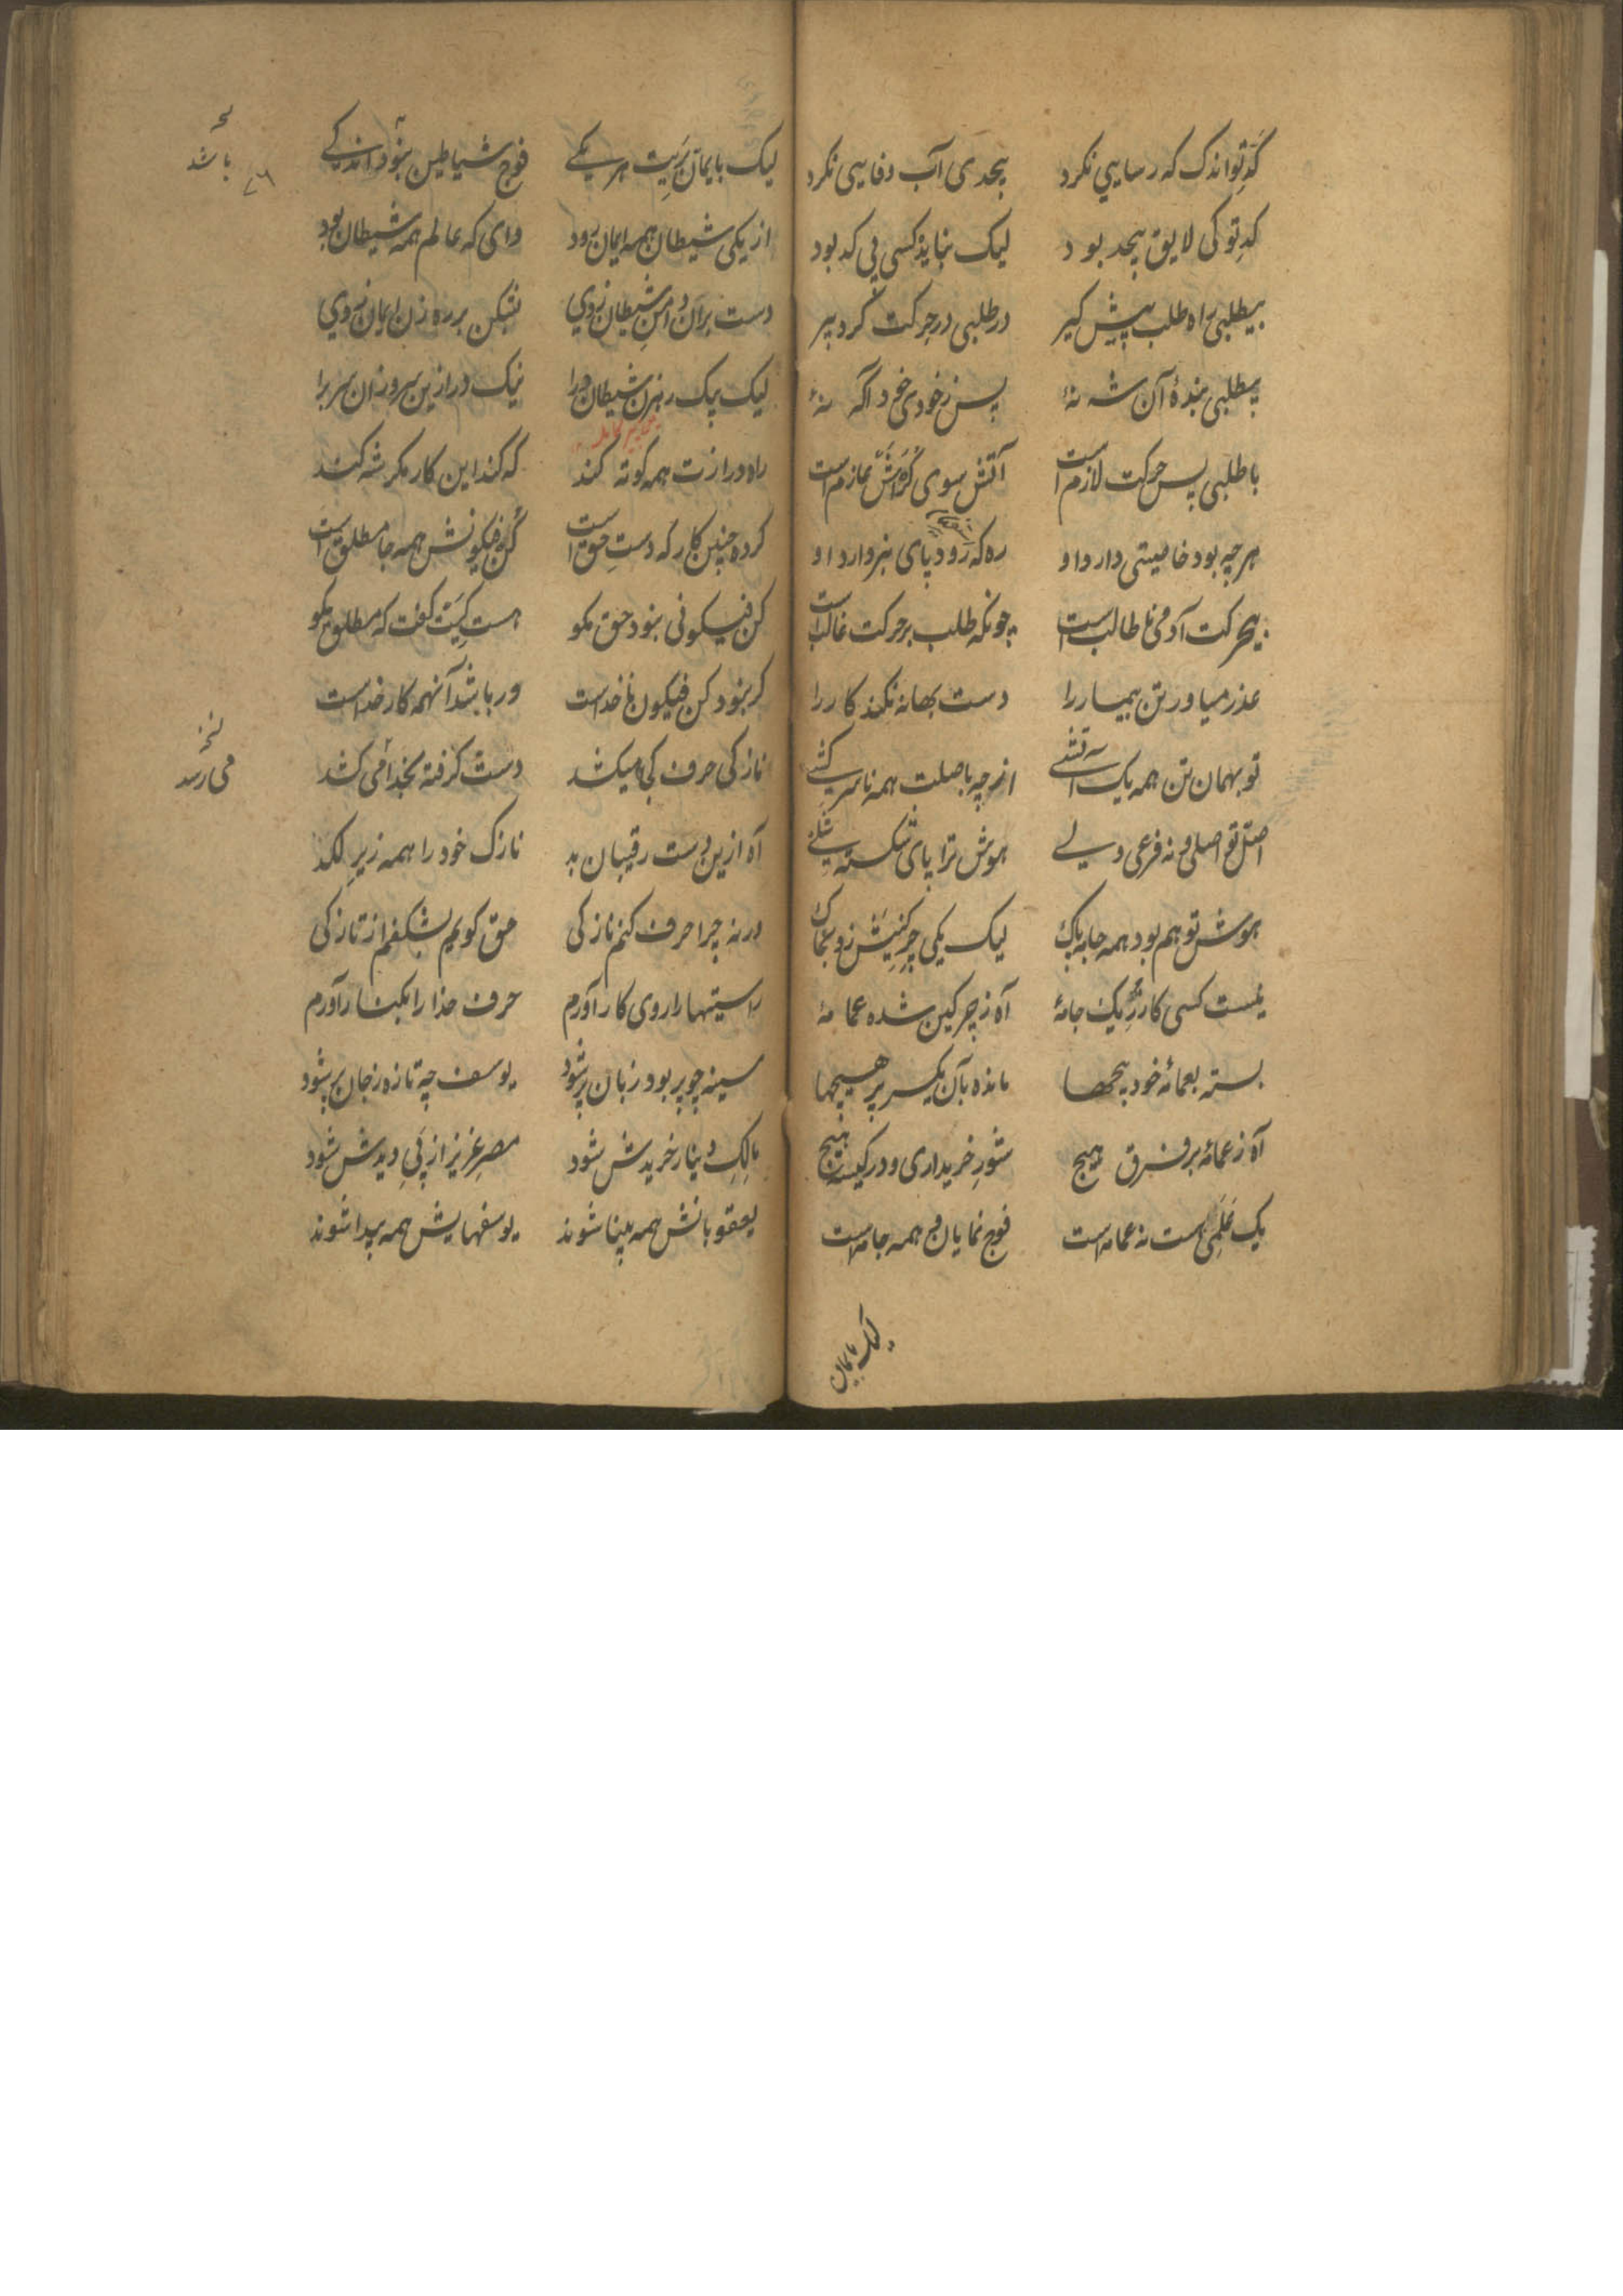 کدِ تو اندک که رسایی نکرد بیحدی آب وفایی نکرد
کدِ تو کی لایق بیحد بود لیک نباید کسی بی کد بود
بیطلبی راه طلب پیش گیر در طلبی در حرکت گرد پیر
بیطلبی بندهٔ آن شه نهٔ پس ز خودی خود آگه نهٔ
با طلبی پس حرکت لازم است آتش سوی کره‌اش عازم است
هرچه بود خاصیتی دارد او ره که رود پای بنزدارد او
بیحرکت آدمی ناطالب است چونکه طلب بر حرکت غالب است
عذر میاور تن بیمار را دست بهانه نکند کار را
تو بهمان تن همه یک آتشی از چه باصلت همه ناسرکشی
اصل تو اصلی و نه فرعی ولی هوش ترا پای شکسته
هوش تو هم بود همه جا به پاک لیک یکی
نیست کسی کارگر یک جامهٔ آه ز چرکین شده عمامهٔ
بسته بعمامهٔ خود پیچها مانده بآن یکسر پر هیچها
آه ز عمامهٔ بر فرق هیچ شور خریداری و در کیسه هیچ
یک علمی است نه عمامه است فوج نمایان همه جامه است
لیک بایمان
لیک بایمان بریت هر یکے فوج شیاطین بنود اندکے
از یکی شیطان همه ایمان رود وای که عالم همه شیطان بود
دست بر آن دامن شیطان زدی بر ره زن ایمان زدی
لیک یک رهزن شیطان ورا نیک درازین سر و زان سر برا
راه درازت همه کوته کند که کند این کار مگر شه کند
کرده چنین کار که دستِ حق است کن فیکونش همه جا مطلق است
کن فیکونی بنود حق مگو هست کیت گفت که مطلق مگو
گر بنود کن فیکون ناخداست ور باشد آنهمه کار خداست
نازکی حرف کجا میکشد دست گرفته بخدا می‌کشد
آه ازین دست رقیبان بد نازک خود را همه زیرِ لکد
ورنه چرا حرف کنم نازکی حق گویم بشکفم از تازکی
راستیها را روی کار آورم حرف خدا را بکنار آورم
سینه چو پر بود زبان پر شود یوسف چه تازه ز جان پر شود
مالکِ دینار خریدش شود مصرِ عزیز از پیِ دیدش شود
یعقوبانش همه بینا شوند یوسفهایش همه پیدا شوند
باشد
۷۶
می رسد